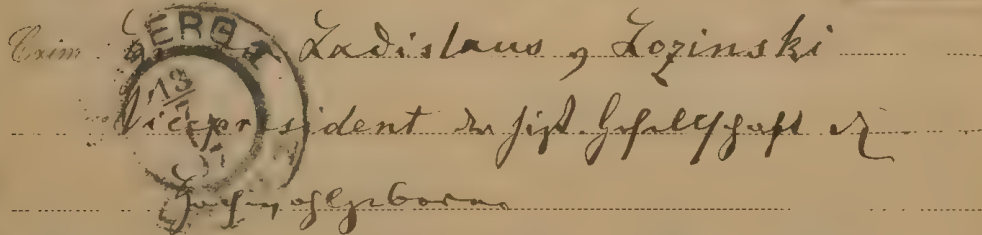 Ladislaus v Lozinski
Vicepresident der hist. Gesellschaft
Hochwohlgeboren